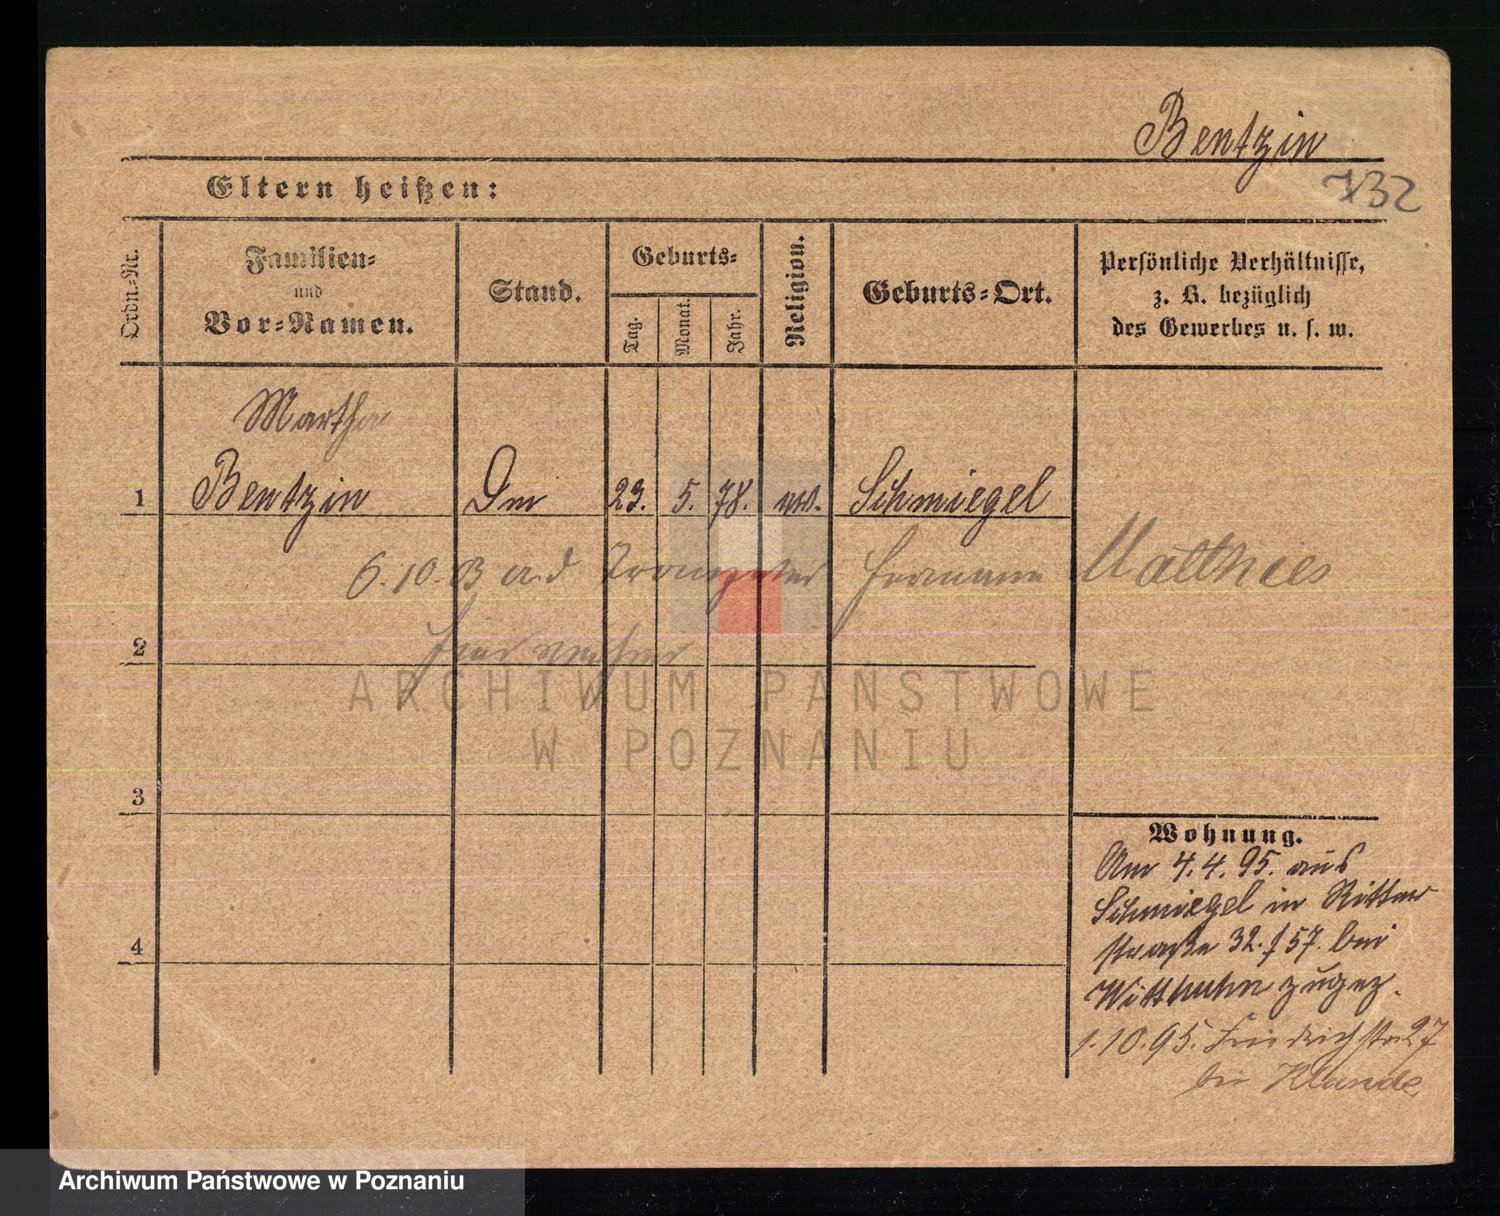 Bentzin
732
Eltern heißen:
Ordn.-Nr.
Familien-
und
Vor-Namen.
Stand.
Geburts-
Tag.
Monat.
Jahr.
Religion.
Geburts-Ort.
Persönliche Verhältnisse,
z. B. bezüglich
des Gewerbes u. s. w.
Martha
1 Bentzin 23. 5. 78. Schmiegel
6.10.03 a.d Trompeter Hermann Matthies
hier
2
ARCHIWUM PAŃSTWOWE
W POZNANIU
3
Wohnung.
Am 4.4.95. aus
Schmiegel in Ritter
straße 32. f 57. bei
Witthuhn zugez.
1.10.95. Friedrichstr 27
bei
4
Archiwum Państwowe w Poznaniu